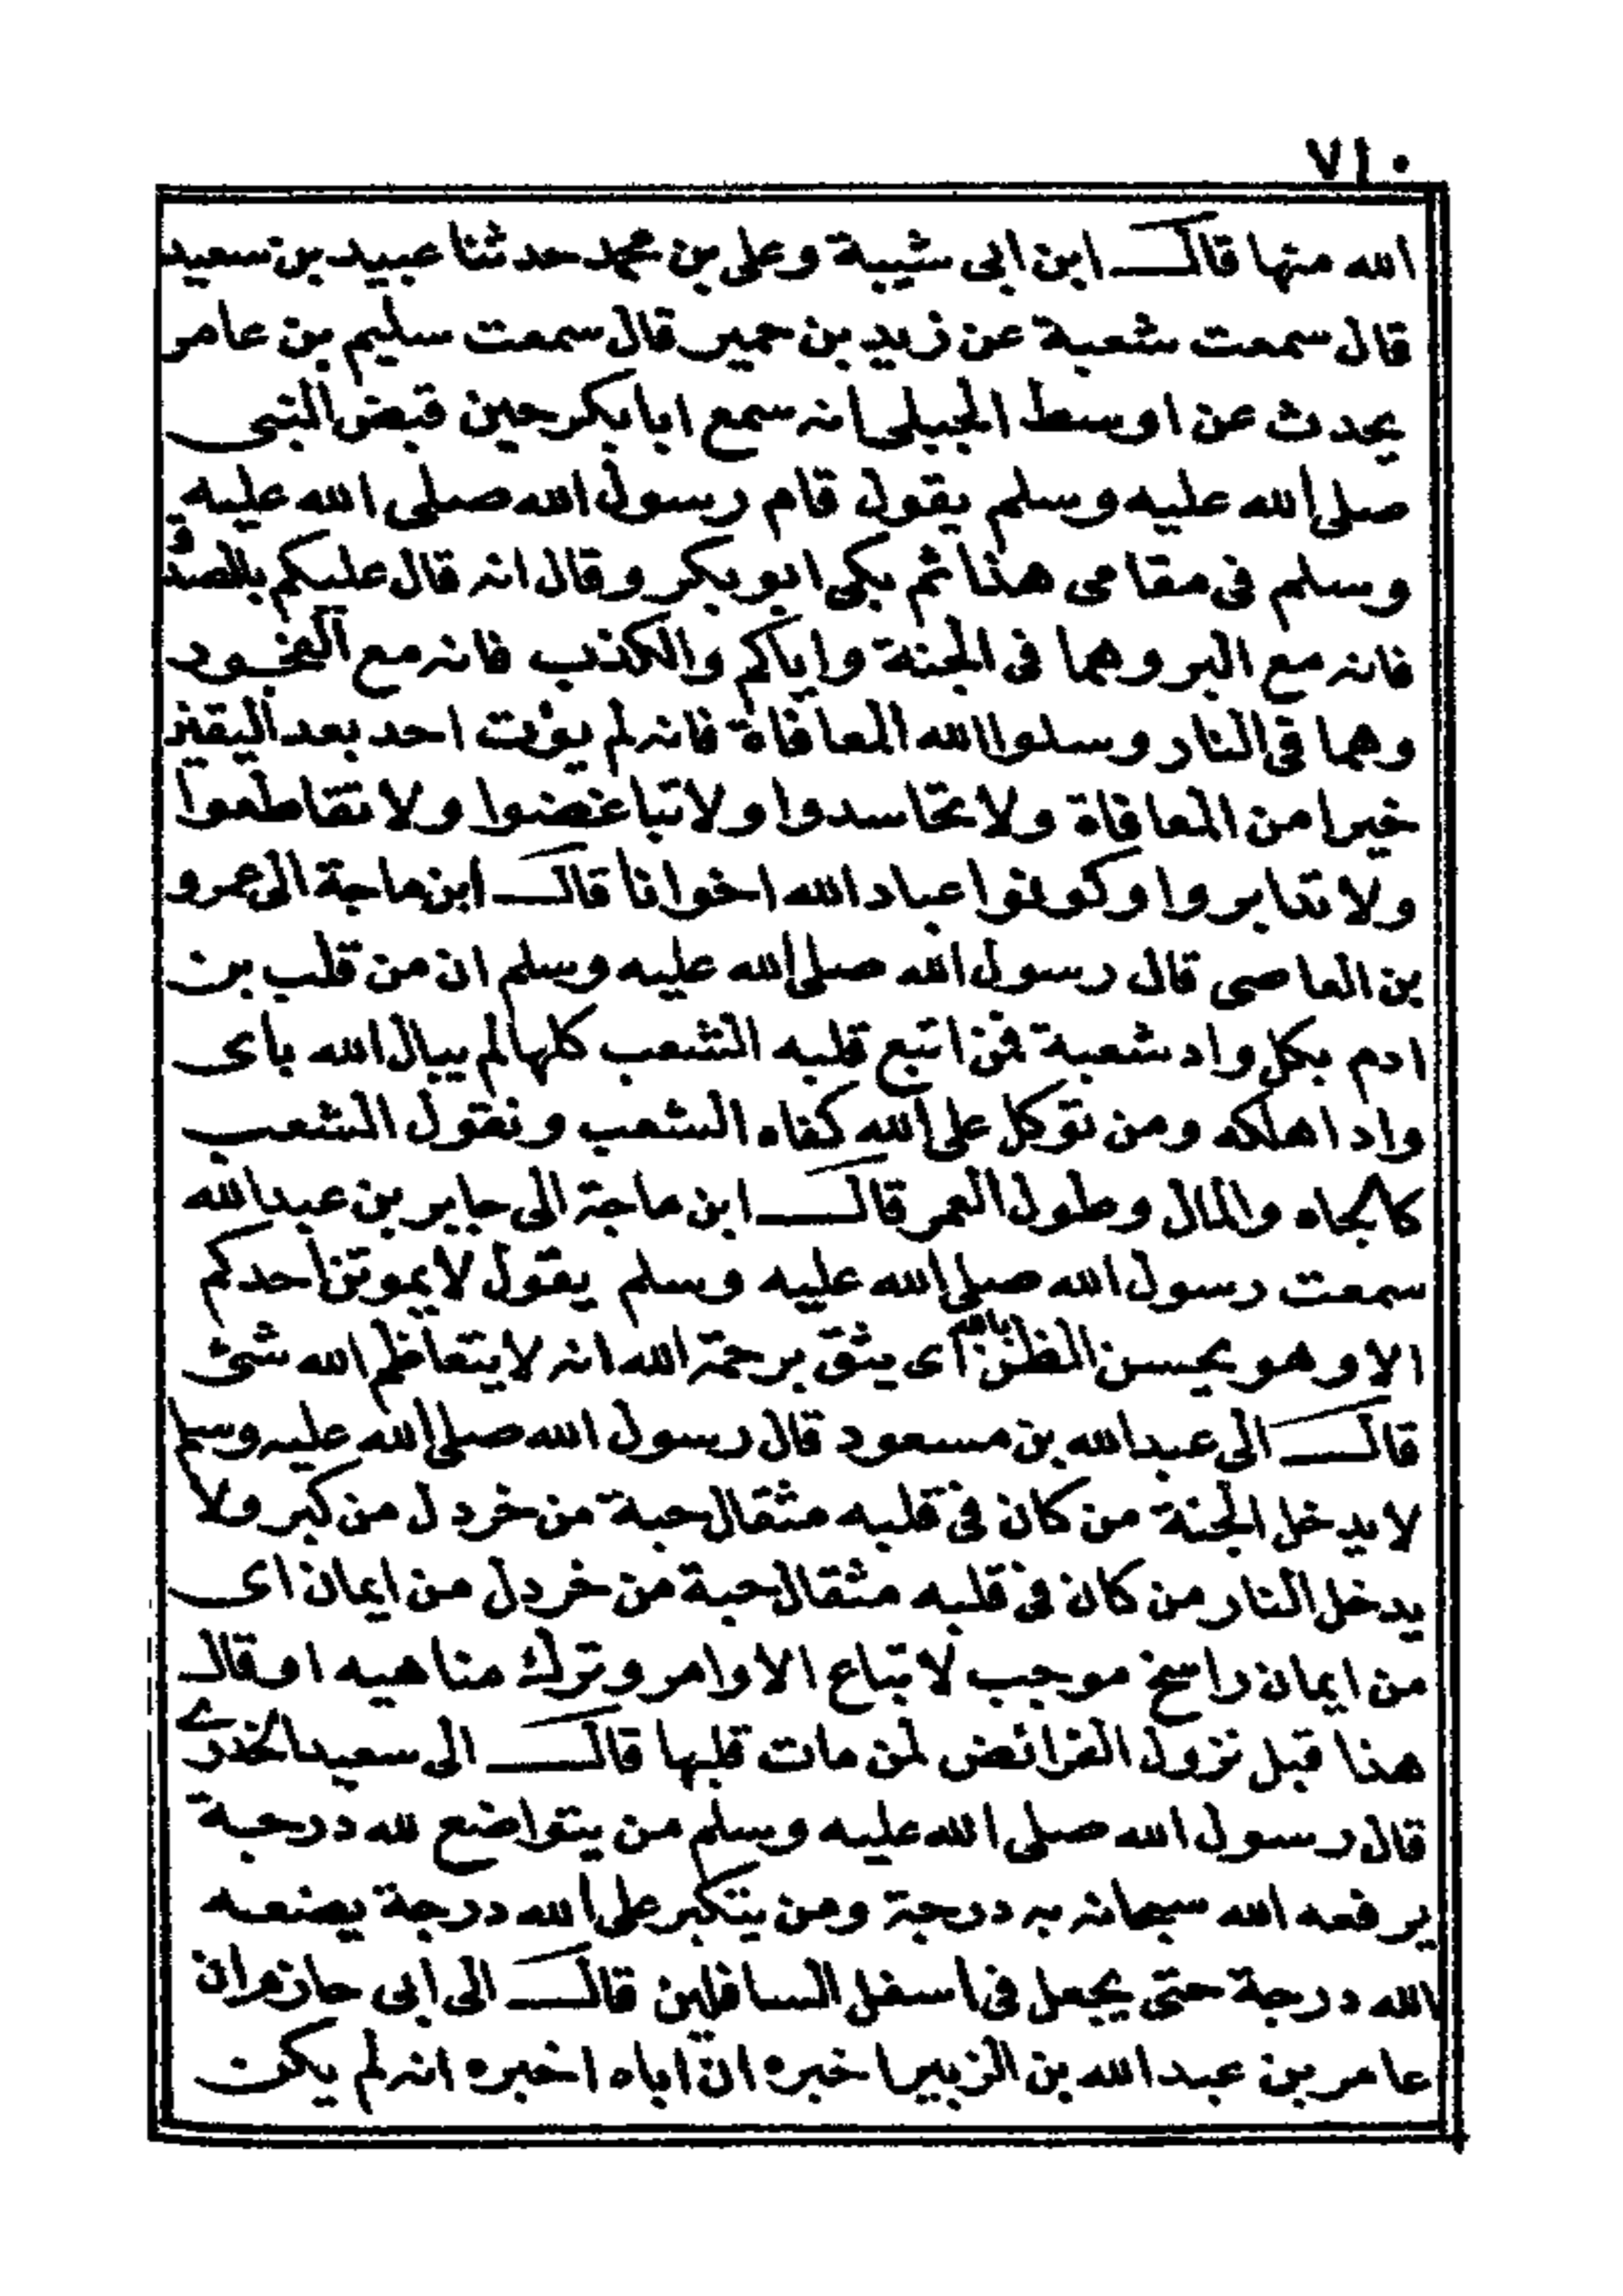 ٧١٠
الله منها قال ابن ابى شيبة وعلى بن محمد حدثنا عبيد بن سعيد
قال سمعت شعبة عن زيد بن حمير قال سمعت سليم بن عامر
يحدث عن اوسط الجبلى انه سمع ابا بكر حين قبض النبى
صلى الله عليه وسلم يقول قام رسول الله صلى الله عليه
وسلم فى مقامى هذا ثم بكى ابو بكر وقال انه قال عليكم بالصدق
فانه مع البر وهما فى الجنة واياكم والكذب فانه مع الفجور
وهما فى النار وسلوا الله المعافاة فانه لم يؤت احد بعد اليقين
خيرا من المعافاة ولا تحاسدوا ولا تباغضوا ولا تقاطعوا
ولا تدابروا وكونوا عباد الله اخوانا قال ابن ماجة الى عمرو
بن العاصى قال رسول الله صلى الله عليه وسلم ان من قلب بن
ادم بكل واد شعبة فمن اتبع قلبه الشعب كلها لم يبال الله باى
واد اهلكه ومن توكل على الله كفاه الشعب ونقول الشعب
كالجاه والمال وطول العمر قال ابن ماجة الى جابر بن عبد الله
سمعت رسول الله صلى الله عليه وسلم يقول لا يموتن احدكم
الا وهو يحسن الظن بالله اى يثق برحمة الله انه لا يتعاظم الله شئ
قال الى عبد الله بن مسعود قال رسول الله صلى الله عليه وسلم
لا يدخل الجنة من كان فى قلبه مثقال حبة من خردل من كبر ولا
يدخل النار من كان فى قلبه مثقال حبة من خردل من ايمان اى
من ايمان راسخ موجب لاتباع الاوامر وترك مناهيه او قال
هذا قبل نزول الفرائض لمن مات قلبها قال الى سعيد الخدرى
قال رسول الله صلى الله عليه وسلم من يتواضع لله درجة
يرفعه الله سبحانه به درجة ومن يتكبر على الله درجة يضعه
الله درجة حتى يجعل فى اسفل السافلين قال الى ابى حازم ان
عامر بن عبد الله بن الزبير اخبره ان اباه اخبره انه لم يكن